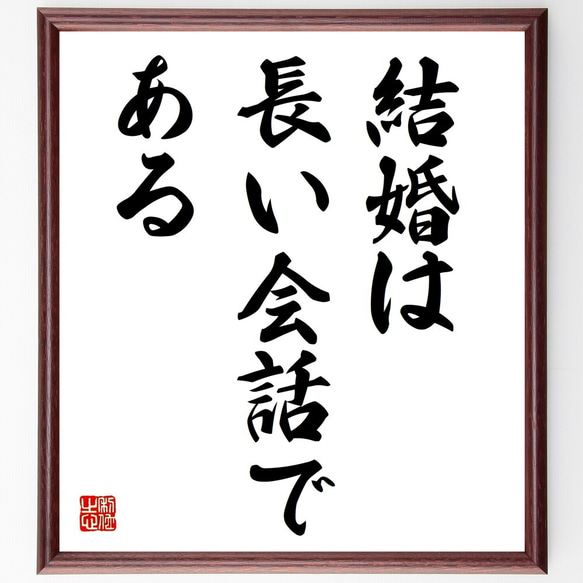 結婚は
長い会話で
ある